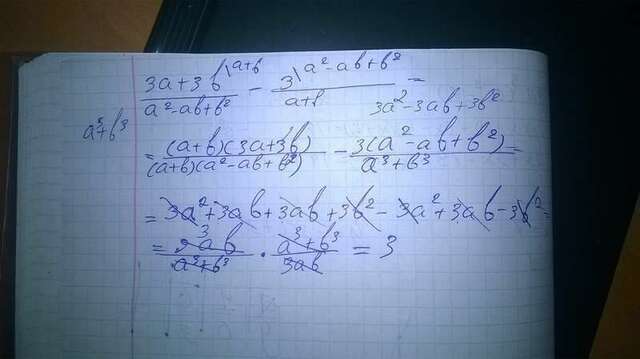 3a+3b\a+b / a²-ab+b² - 3\a²-ab+b² / a+b =
3a²-3ab+3b²
a³+b³
= (a+b)(3a+3b) / (a+b)(a²-ab+b²) - 3(a²-ab+b²) / a³+b³ =
= 3a²+3ab+3ab+3b²-3a²+3ab-3b² =
= 9ab / a³+b³ · a³+b³ / 3ab = 3